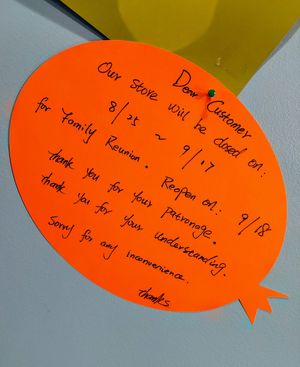 Dear Customer
Our store will be closed on:
8/25 ~ 9/17
for Family Reunion. Reopen on: 9/18
thank you for your patronage.
thank you for your understanding.
Sorry for any inconvenience.
thanks